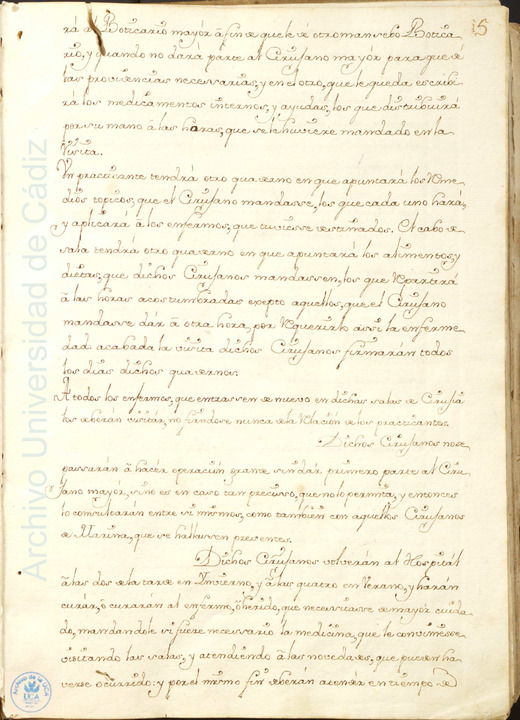 15
rá al Boticario mayór â fin de que le dé otro mansebo Botica-
rio, y quando no dará parte al Cirujano mayór para que dé
las providencias necessarias, y en el otro, que le queda escribi-
rá los medicamentos internos, y ayudas, los que distribuirá
por su mano â las horas, que se le huviere mandado en la
Visita.
Un practicante tendrá otro quaderno en que apuntará los Reme-
dios topicos, que el Cirujano mandasse, los que cada uno hará,
y aplicará â los enfermos, que tuviesse destinados. El cabo de
sala tendrá otro quaderno en que apuntará los alimentos, y
dietas, que dichos Cirujanos mandassen, los que Repartirá
â las horas acostumbradas exepto aquellos, que el Cirujano
mandasse dár â otra hora, por Requerirlo assi la enferme-
dad: acabada la visita dichos Cirujanos firmarán todos
los dias dichos quadernos.
A todos los enfermos, que entrassen de nuevo en dichas salas de Cirujia
los deberán visitár, no fiandose nunca de la Relación de los practicantes.
Dichos Cirujanos no se
passarán â hacér operación grande sin dár primero parte al Ciru-
jano mayór, sino es en caso tan preciso, que no lo permita, y entonces
lo consultarán entre si mismos, como tambien con aquellos Cirujanos
de Marina, que se hallassen presentes.
Dichos Cirujanos volverán al Hospitál
â las dos de la tarde en Ynvierno, y â las quatro en Verano, y harán
curár, ô curarán al enfermo, ô herido, que necesitasse de mayor cuida-
do, mandandole si fuere necessario la medicina, que le conviniesse
visitando las salas, y atendiendo â las novedades, que pueden ha-
verse ocurrido: y por el mismo fin deberán atendér en tiempo de
Archivo Universidad de Cádiz
Archivo de la UCA
UCA